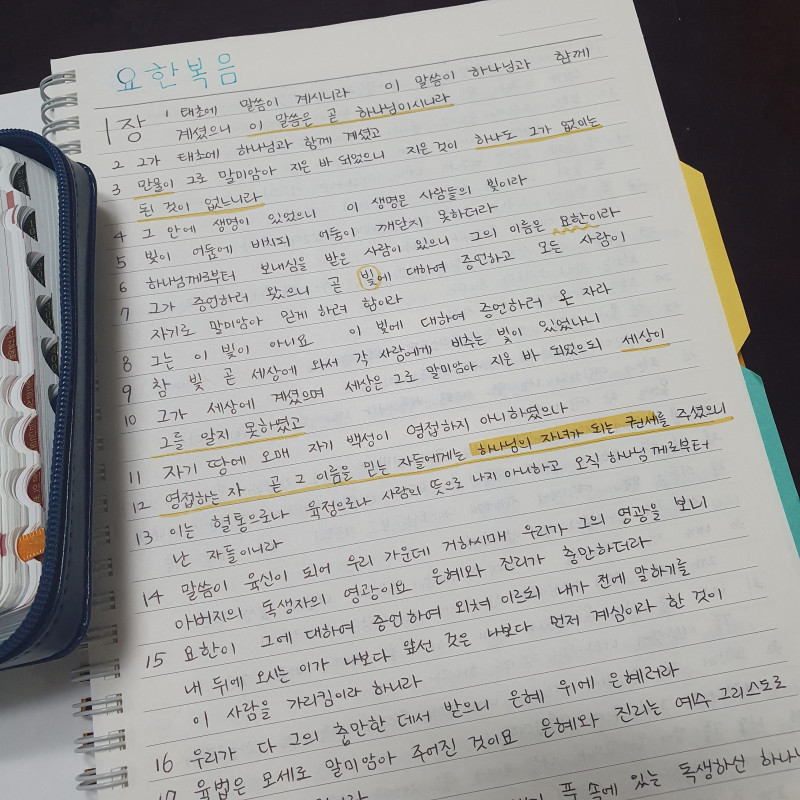 요한복음
1장 1 태초에 말씀이 계시니라 이 말씀이 하나님과 함께
계셨으니 이 말씀은 곧 하나님이시니라
2 그가 태초에 하나님과 함께 계셨고
3 만물이 그로 말미암아 지은 바 되었으니 지은것이 하나도 그가 없이는
된 것이 없느니라
4 그 안에 생명이 있었으니 이 생명은 사람들의 빛이라
5 빛이 어둠에 비치되 어둠이 깨닫지 못하더라
6 하나님께로부터 보내심을 받은 사람이 있으니 그의 이름은 요한이라
7 그가 증언하러 왔으니 곧 빛에 대하여 증언하고 모든 사람이
자기로 말미암아 믿게 하려 함이라
8 그는 이 빛이 아니요 이 빛에 대하여 증언하러 온 자라
9 참 빛 곧 세상에 와서 각 사람에게 비추는 빛이 있었나니
10 그가 세상에 계셨으며 세상은 그로 말미암아 지은 바 되었으되 세상이
그를 알지 못하였고
11 자기 땅에 오매 자기 백성이 영접하지 아니하였으나
12 영접하는 자 곧 그 이름을 믿는 자들에게는 하나님의 자녀가 되는 권세를 주셨으니
13 이는 혈통으로나 육정으로나 사람의 뜻으로 나지 아니하고 오직 하나님께로부터
난 자들이니라
14 말씀이 육신이 되어 우리 가운데 거하시매 우리가 그의 영광을 보니
아버지의 독생자의 영광이요 은혜와 진리가 충만하더라
15 요한이 그에 대하여 증언하여 외쳐 이르되 내가 전에 말하기를
내 뒤에 오시는 이가 나보다 앞선 것은 나보다 먼저 계심이라 한 것이
이 사람을 가리킴이라 하니라
16 우리가 다 그의 충만한 데서 받으니 은혜 위에 은혜러라
17 율법은 모세로 말미암아 주어진 것이요 은혜와 진리는 예수 그리스도로
품 속에 있는 독생하신 하나